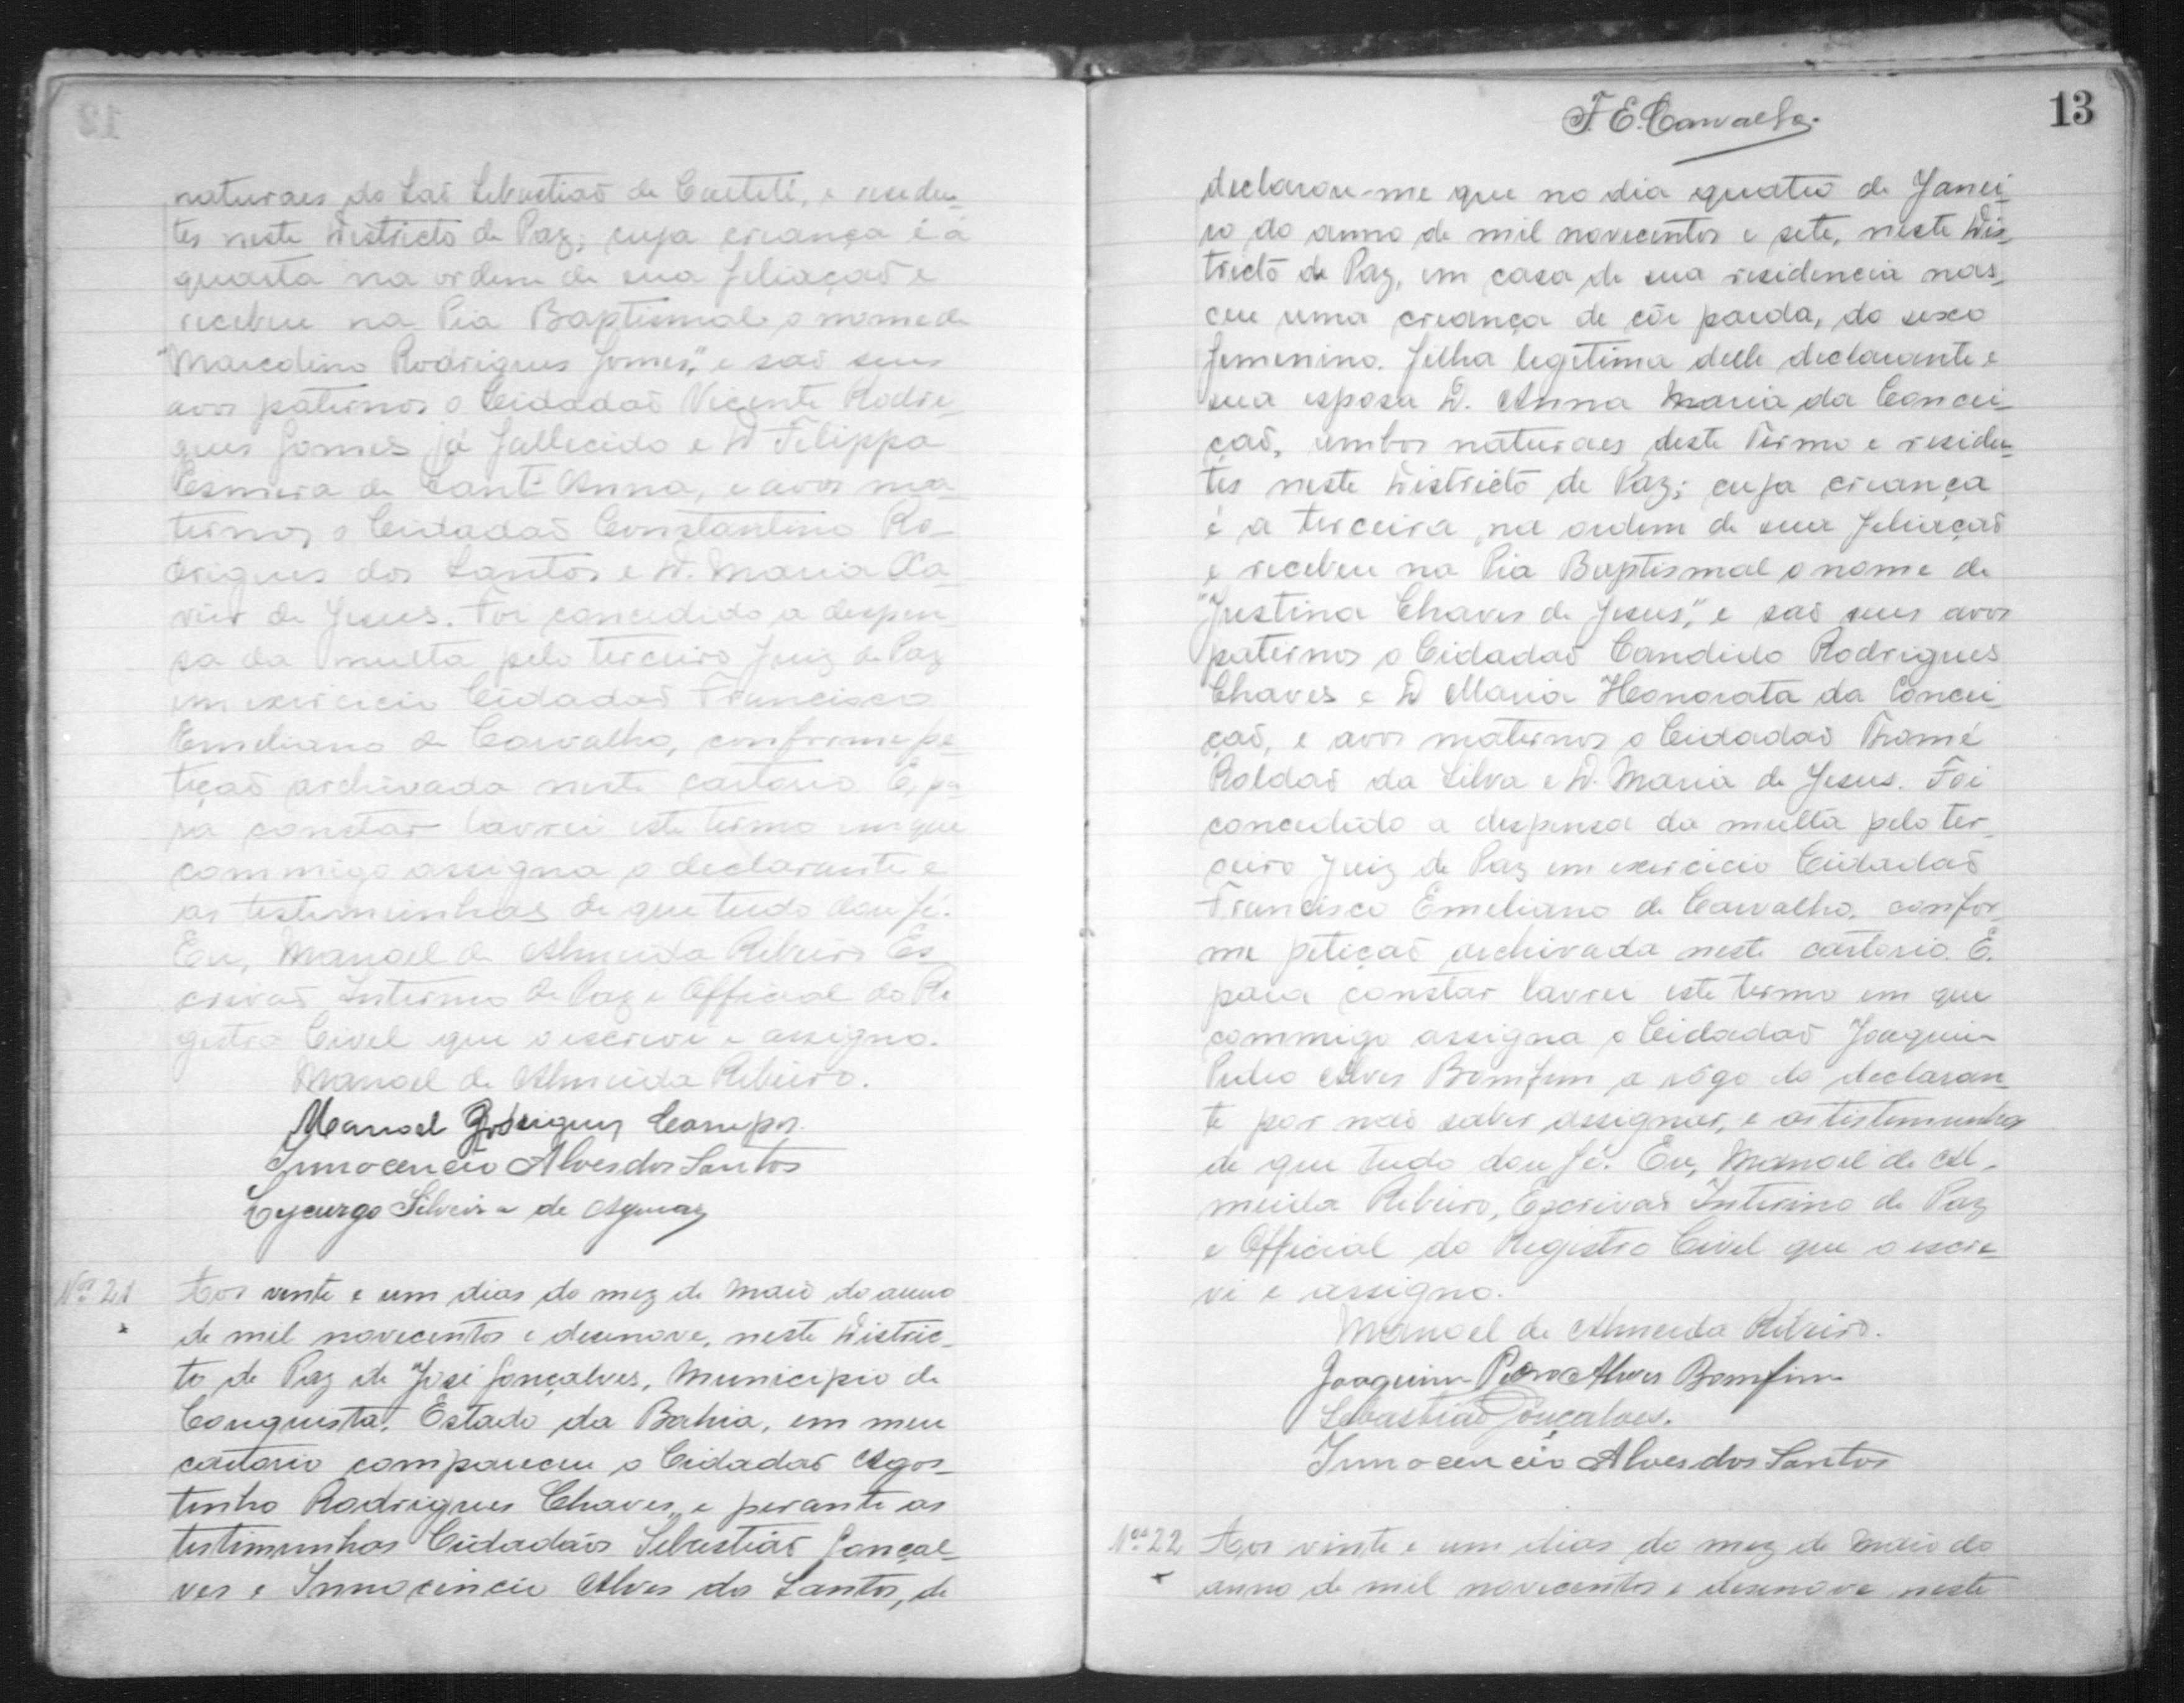 naturaes do Saõ Sebastiaõ de Caeteté, e residen-
tes neste Districto de Paz; cuja criança é a
quarta na ordem de sua filiaçaõ e
recebeu na Pia Baptismal o nome de
"Marcolino Rodrigues Gomes," e saõ seus
avos paternos o Cidadaõ Vicente Rodri-
gues Gomes já fallecido e D Filippa
de Sant'Anna, e avos ma-
ternos o Cidadaõ Constantino Ro-
drigues dos Santos e D. Maria Xa-
vier de Jesus. Foi concedido a dispen-
sa da multa pelo terceiro Juiz de Paz
em exercicio Cidadaõ Francisco
Emiliano de Carvalho, conforme pe-
tiçaõ archivada neste cartorio. E, pa-
ra constar lavrei este termo em que
commigo assigna o declarante e
as testemunhas de que tudo dou fé.
Eu, Manoel de Almeida Ribeiro Es-
crivaõ Interino de Paz e Official do Re-
gistro Civel que o escrevi e assigno.
Manoel de Almeida Ribeiro.
Manoel Rodrigues Campos.
Innocencio Alves dos Santos
Lycurgo Silveira de
Nº 21 Aos vinte e um dias do mez de Maio do anno
de mil novecentos e desenove, neste Distric-
to de Paz de José Gonçalves, Municipio de
Conquista, Estado da Bahia, em meu
cartorio compareceu o Cidadaõ Agos-
tinho Rodrigues Chaves, e perante as
testimunhas Cidadaõs Sebastiaõ Gonçal-
ves e Innocencio Alves do Santos, de
F. E. Carvalho.
13
declarou-me que no dia quatro de Janei-
ro do anno de mil novecentos e sete, neste Dis-
tricto de Paz, em casa de sua residencia nas-
ceu uma criança de côr parda, do sexo
femenino. filha legitima delle declarante e
sua esposa D. Anna Maria da Concei-
çaõ, ambos naturaes deste Termo e residen-
tes neste Districto de Paz; cuja criança
é a terceira na ordem de sua filiaçaõ
e recebeu na Pia Baptismal o nome de
"Justina Chaves de Jesus," e saõ seus avos
paternos o Cidadaõ Candido Rodrigues
Chaves e D Maria Honorata da Concei-
çaõ, e avos maternos o Cidadaõ Thomé
Roldaõ da Silva e D. Maria de Jesus. Foi
concedido a dispensa da multa pelo ter-
ceiro Juiz de Paz em exercicio Cidadaõ
Francisco Emeliano de Carvalho, confor-
me petiçaõ archivada neste cartorio. E.
para constar lavrei este termo em que
commigo assigna o Cidadaõ Joaquim
Pedro Alves Bomfim a rôgo do declaran-
te por naõ saber assignar, e as testemunhas
de que tudo dou fé. Eu, Manoel de Al-
meida Ribeiro, Escrivaõ Interino de Paz
e Official do Registro Civel que o escre-
vi e assigno.
Manoel de Almeida Ribeiro.
Joaquim Pedro Alves Bomfim
Sebastiaõ Gonçalves.
Innocencio Alves dos Santos
Nº 22 Aos vinte e um dias do mez de Maio do
anno de mil novecentos e desenove neste